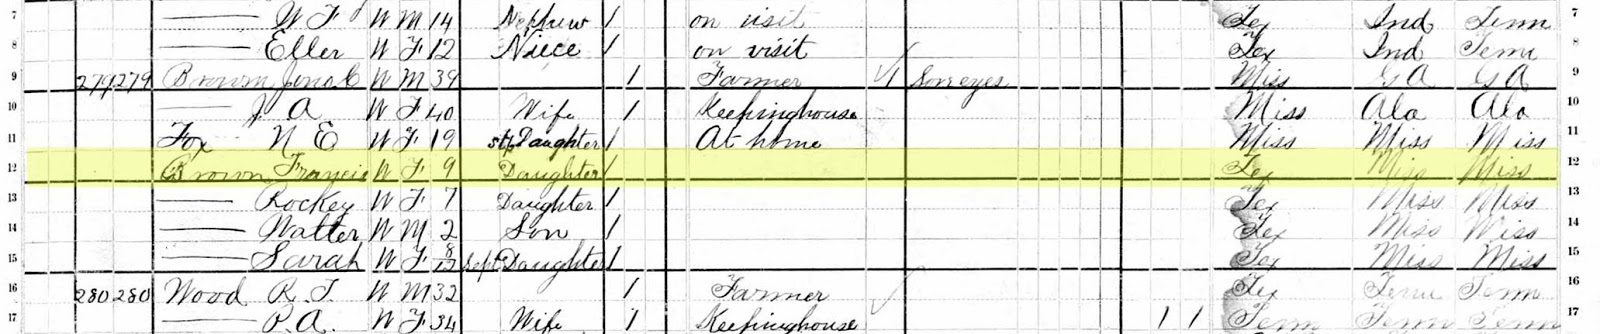 7 —— W F W M 14 Nephew / on visit Tex Ind Tenn 7
8 —— Eller W F 12 Niece / on visit Tex Ind Tenn 8
9 279 279 Brown W M 39 1 Farmer 1 Sore eyes Miss GA GA 9
10 —— J A W F 40 Wife 1 Keepinghouse Miss Ala Ala 10
11 Fox N E W F 19 step Daughter / At home Miss Miss Miss 11
12 Brown Francis W F 9 Daughter / Tex Miss Miss 12
13 —— Rockey W F 7 Daughter / Tex Miss Miss 13
14 —— Walter W M 2 Son / Tex Miss Miss 14
15 —— Sarah W F 8/12 Sept Daughter / Tex Miss Miss 15
16 280 280 Wood R. T. W M 32 1 Farmer Tex Tenn Tenn 16
17 —— P. A. W F 34 Wife 1 Keepinghouse 1 1 Tenn Tenn Tenn 17